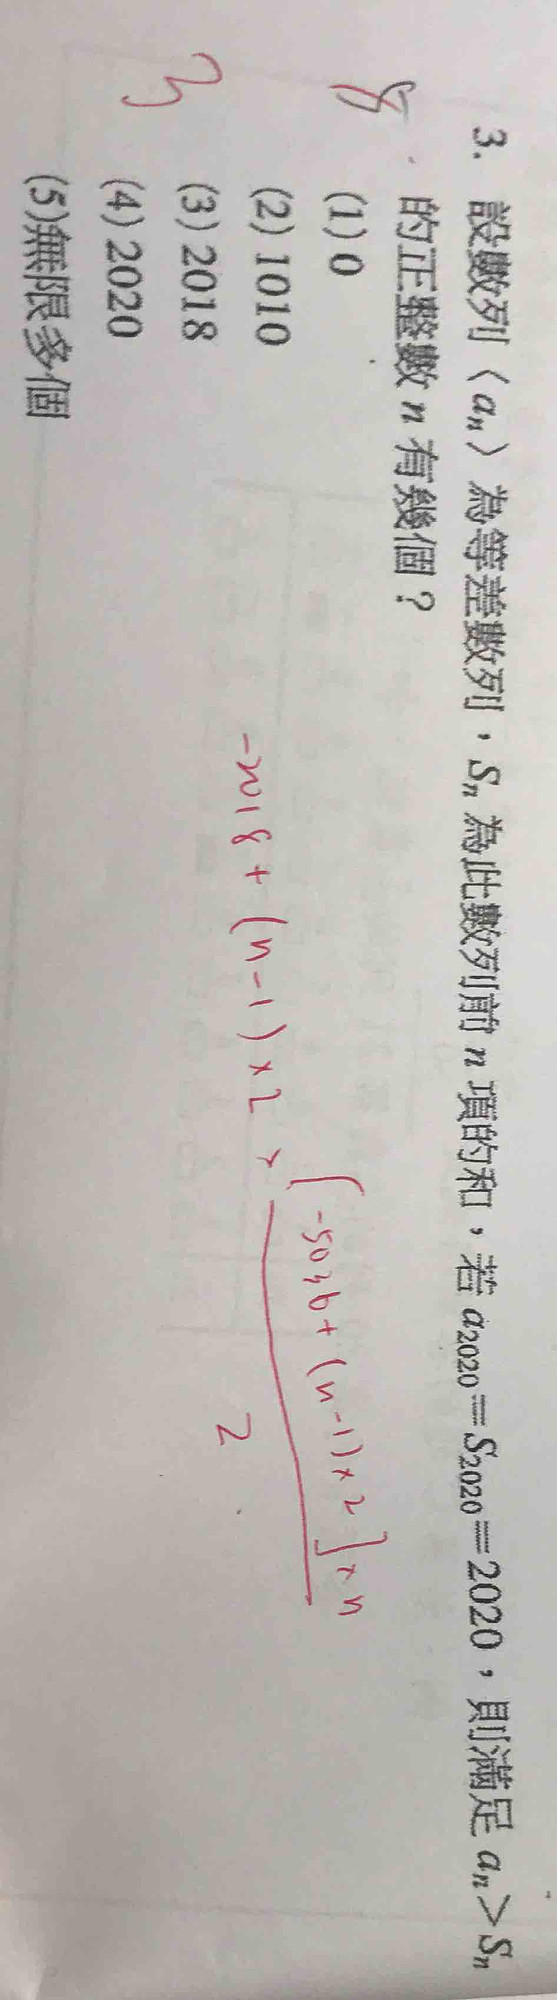 3. 設數列〈aₙ〉為等差數列，Sₙ 為此數列前 n 項的和，若 a₂₀₂₀＝S₂₀₂₀＝2020，則滿足 aₙ＞Sₙ
的正整數 n 有幾個？
(1) 0
(2) 1010
(3) 2018
(4) 2020
(5)無限多個
8
3
-2018+(n-1)×2 > [-5036+(n-1)×2]×n
2